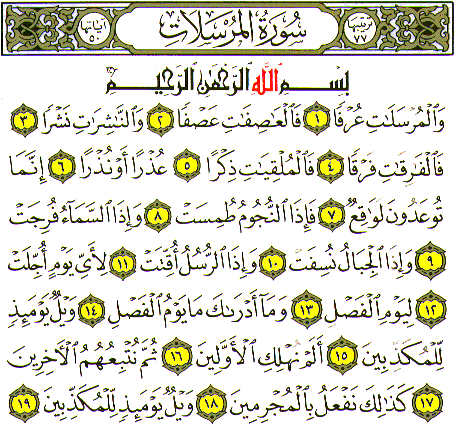 ترتيبها ٧٧ سُورَةُ المُرۡسَلَات آياتها ٥٠
بِسۡمِ ٱللَّهِ ٱلرَّحۡمَٰنِ ٱلرَّحِيمِ
وَٱلۡمُرۡسَلَٰتِ عُرۡفٗا ١ فَٱلۡعَٰصِفَٰتِ عَصۡفٗا ٢ وَٱلنَّٰشِرَٰتِ نَشۡرٗا ٣
فَٱلۡفَٰرِقَٰتِ فَرۡقٗا ٤ فَٱلۡمُلۡقِيَٰتِ ذِكۡرًا ٥ عُذۡرًا أَوۡ نُذۡرًا ٦ إِنَّمَا
تُوعَدُونَ لَوَٰقِعٞ ٧ فَإِذَا ٱلنُّجُومُ طُمِسَتۡ ٨ وَإِذَا ٱلسَّمَآءُ فُرِجَتۡ
٩ وَإِذَا ٱلۡجِبَالُ نُسِفَتۡ ١٠ وَإِذَا ٱلرُّسُلُ أُقِّتَتۡ ١١ لِأَيِّ يَوۡمٍ أُجِّلَتۡ
١٢ لِيَوۡمِ ٱلۡفَصۡلِ ١٣ وَمَآ أَدۡرَىٰكَ مَا يَوۡمُ ٱلۡفَصۡلِ ١٤ وَيۡلٞ يَوۡمَئِذٖ
لِّلۡمُكَذِّبِينَ ١٥ أَلَمۡ نُهۡلِكِ ٱلۡأَوَّلِينَ ١٦ ثُمَّ نُتۡبِعُهُمُ ٱلۡأٓخِرِينَ
١٧ كَذَٰلِكَ نَفۡعَلُ بِٱلۡمُجۡرِمِينَ ١٨ وَيۡلٞ يَوۡمَئِذٖ لِّلۡمُكَذِّبِينَ ١٩